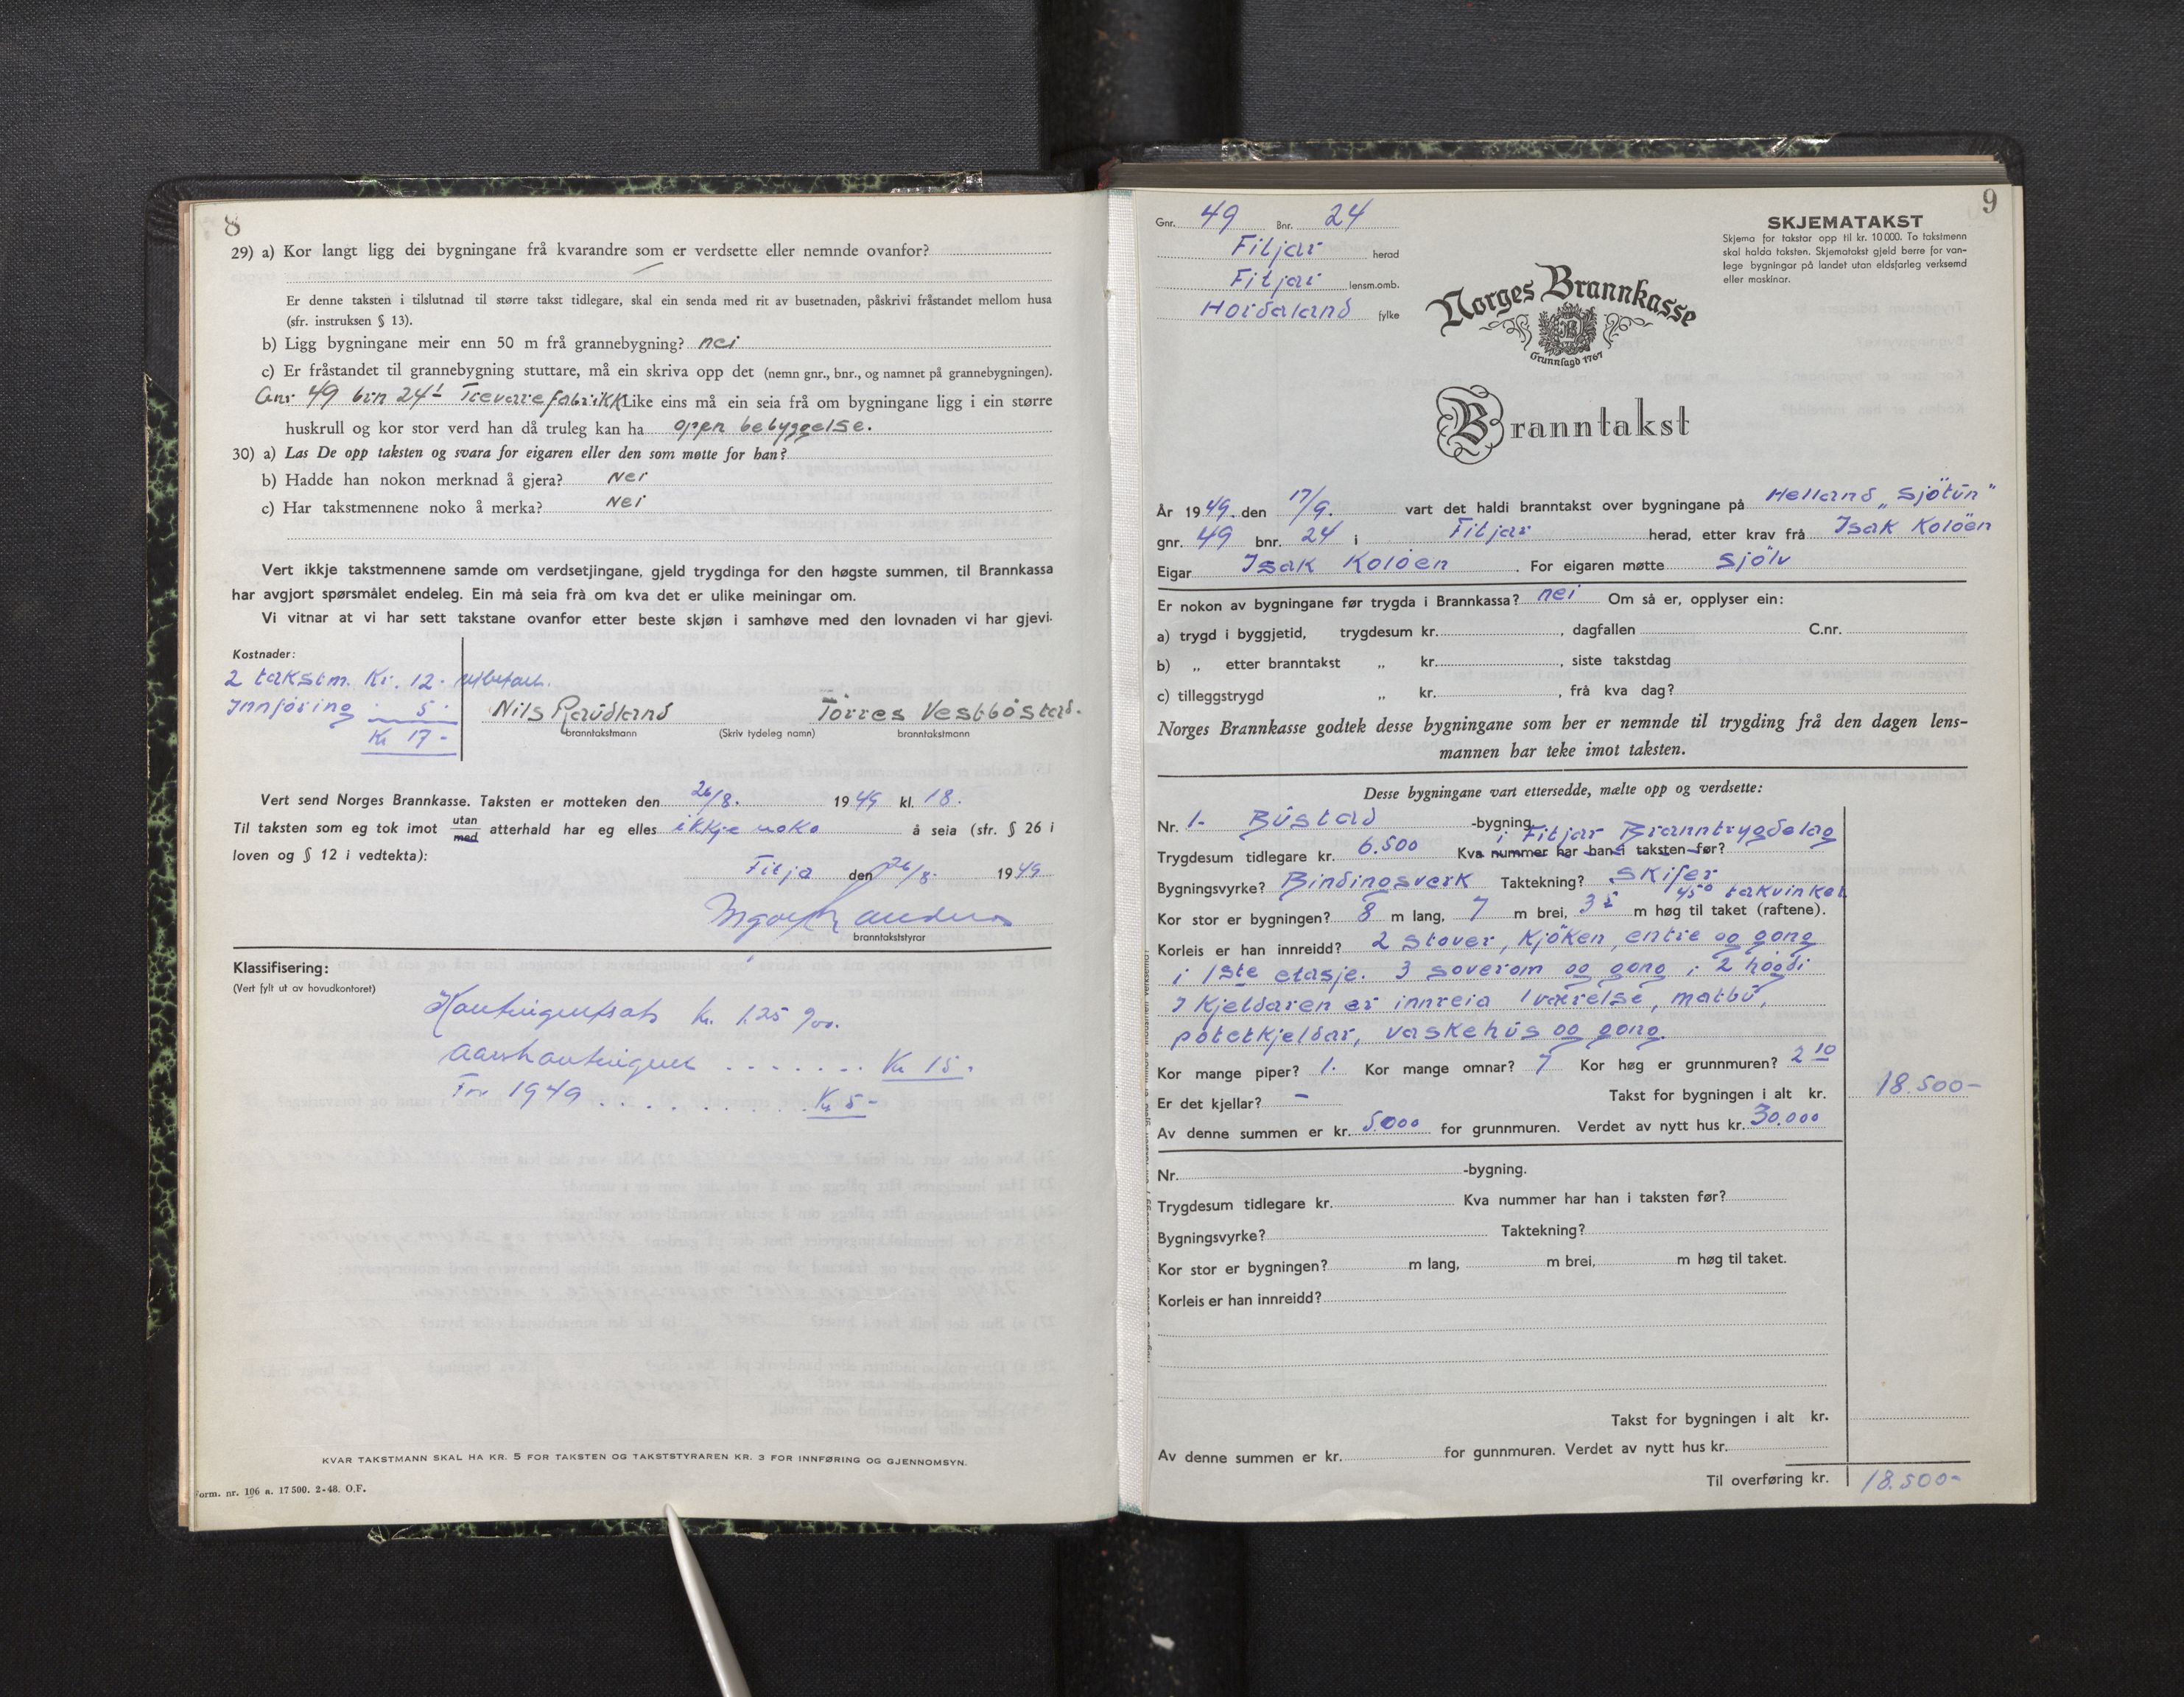 8
29) a) Kor langt ligg dei bygningane frå kvarandre som er verdsette eller nemnde ovanfor?
Er denne taksten i tilslutnad til større takst tidlegare, skal ein senda med rit av busetnaden, påskrivi fråstandet mellom husa
(sfr. instruksen § 13).
b) Ligg bygningane meir enn 50 m frå grannebygning? nei
c) Er fråstandet til grannebygning stuttare, må ein skriva opp det (nemn gnr., bnr., og namnet på grannebygningen).
Gnr 49 bnr 24¹ Trevarefabrikk Like eins må ein seia frå om bygningane ligg i ein større
huskrull og kor stor verd han då truleg kan ha open bebyggelse.
30) a) Las De opp taksten og svara for eigaren eller den som møtte for han?
b) Hadde han nokon merknad å gjera? Nei
c) Har takstmennene noko å merka? Nei
Vert ikkje takstmennene samde om verdsetjingane, gjeld trygdinga for den høgste summen, til Brannkassa
har avgjort spørsmålet endeleg. Ein må seia frå om kva det er ulike meiningar om.
Vi vitnar at vi har sett takstane ovanfor etter beste skjøn i samhøve med den lovnaden vi har gjevi.
Kostnader:
2 takstm. Kr. 12.- utbetalt.
Innföring - 5.-
Kr 17 -
Nils Raudland Torres Vestböstad.
branntakstmann (Skriv tydeleg namn) branntakstmann
Vert send Norges Brannkasse. Taksten er motteken den 26/8. 1949 kl. 18.
Til taksten som eg tok imot utan med atterhald har eg elles ikkje noko å seia (sfr. § 26 i
loven og § 12 i vedtekta):
Fitja den 26/8. 1949
branntakststyrar
Klassifisering:
(Vert fylt ut av hovudkontoret)
Kontingentsats kr. 1.25 %oo.
Aarskontingent ....... Kr 15.
For 1949 .......... Kr 5-
KVAR TAKSTMANN SKAL HA KR. 5 FOR TAKSTEN OG TAKSTSTYRAREN KR. 3 FOR INNFØRING OG GJENNOMSYN.
Form. nr. 106 a. 17 500. 2-48. O.F.
9
Gnr. 49 Bnr. 24
Fitjar herad
Fitjar lensm.omb.
Hordaland fylke
SKJEMATAKST
Skjema for takstar opp til kr. 10 000. To takstmenn
skal halda taksten. Skjematakst gjeld berre for van-
lege bygningar på landet utan eldsfarleg verksemd
eller maskinar.
Norges Brannkasse
Grunnlagd 1767
Branntakst
År 1949. den 17/9. vart det haldi branntakst over bygningane på Helland „Sjötun"
gnr. 49 bnr. 24 i Fitjar herad, etter krav frå Isak Kolöen
Eigar Isak Kolöen. For eigaren møtte Sjölv
Er nokon av bygningane før trygda i Brannkassa? nei Om så er, opplyser ein:
a) trygd i byggjetid, trygdesum kr. , dagfallen C.nr.
b) „ etter branntakst „ kr. , siste takstdag
c) tilleggstrygd „ kr. , frå kva dag?
Norges Brannkasse godtek desse bygningane som her er nemnde til trygding frå den dagen lens-
mannen har teke imot taksten.
Desse bygningane vart ettersedde, mælte opp og verdsette:
Nr. 1. Bustad -bygning.
i Fitjar Branntrygdelag
Trygdesum tidlegare kr. 6.500 Kva nummer har han i taksten før?
Bygningsvyrke? Bindingsverk Taktekning? Skifer
45° takvinkel
Kor stor er bygningen? 8 m lang, 7 m brei, 3 5 m høg til taket (raftene).
Korleis er han innreidd? 2 stover, kjöken, entre og gong
i 1ste etasje. 3 soverom og gong i 2 högdi
I kjeldaren er innreia 1 værelse, matbu,
potetkjeldar, vaskehus og gong.
Kor mange piper? 1. Kor mange omnar? 7 Kor høg er grunnmuren? 2 10
Er det kjellar? – Takst for bygningen i alt kr. 18.500-
Av denne summen er kr. 5.000 for grunnmuren. Verdet av nytt hus kr. 30.000
Nr. -bygning.
Trygdesum tidlegare kr. Kva nummer har han i taksten før?
Bygningsvyrke? Taktekning?
Kor stor er bygningen? m lang, m brei, m høg til taket.
Korleis er han innreidd?
Takst for bygningen i alt kr.
Av denne summen er kr. for gunnmuren. Verdet av nytt hus kr.
Til overføring kr. 18.500-